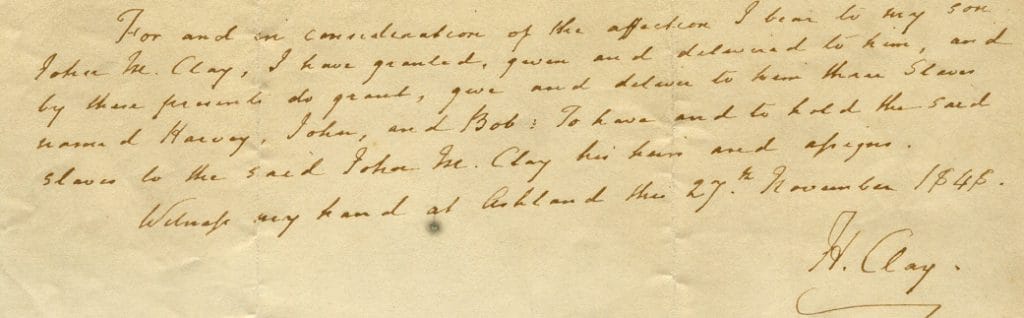 For and in consideration of the affection I bear to my son
John M. Clay, I have granted, given and delivered to him, and
by these presents do grant, give and deliver to him three Slaves
named Harvey, John, and Bob: To have and to hold the said
slaves to the said John M. Clay his heirs and assigns.
Witness my hand at Ashland this 27th. November 1848.
H. Clay.